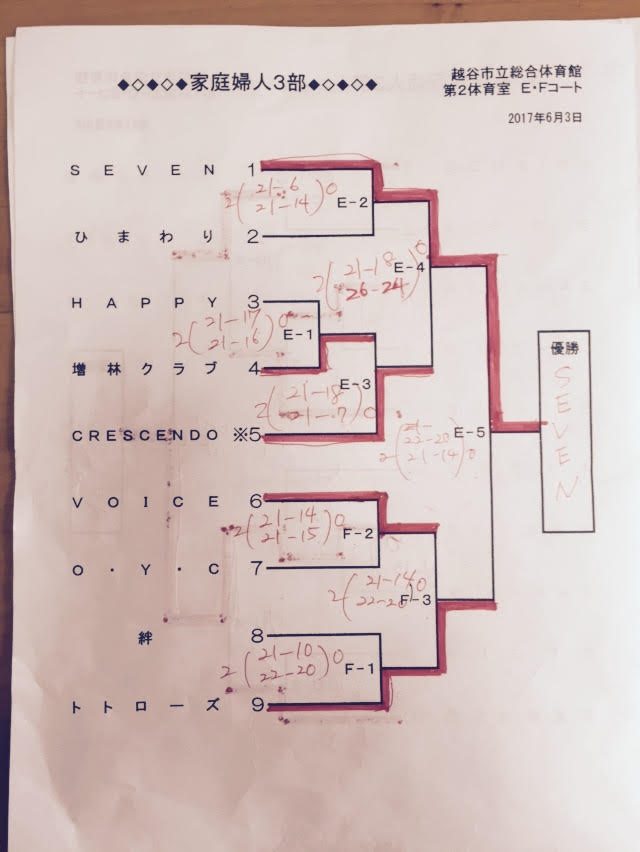 ◆◇◆◇◆家庭婦人3部◆◇◆◇◆
越谷市立総合体育館
第2体育室 E・Fコート
2017年6月3日
SEVEN 1
2(21-6 21-14)0
E-2
ひまわり 2
E-4
2(21-18 26-24)0
HAPPY 3
2(21-17 21-16)0
E-1
増林クラブ 4
E-3
2(21-18
)0
CRESCENDO ※5
E-5
2(22-20 21-14)0
優勝
SEVEN
VOICE 6
2(21-14 21-15)0
F-2
O・Y・C 7
2(21-14 22-20)0
F-3
絆 8
2(21-10 22-20)0
F-1
トトローズ 9